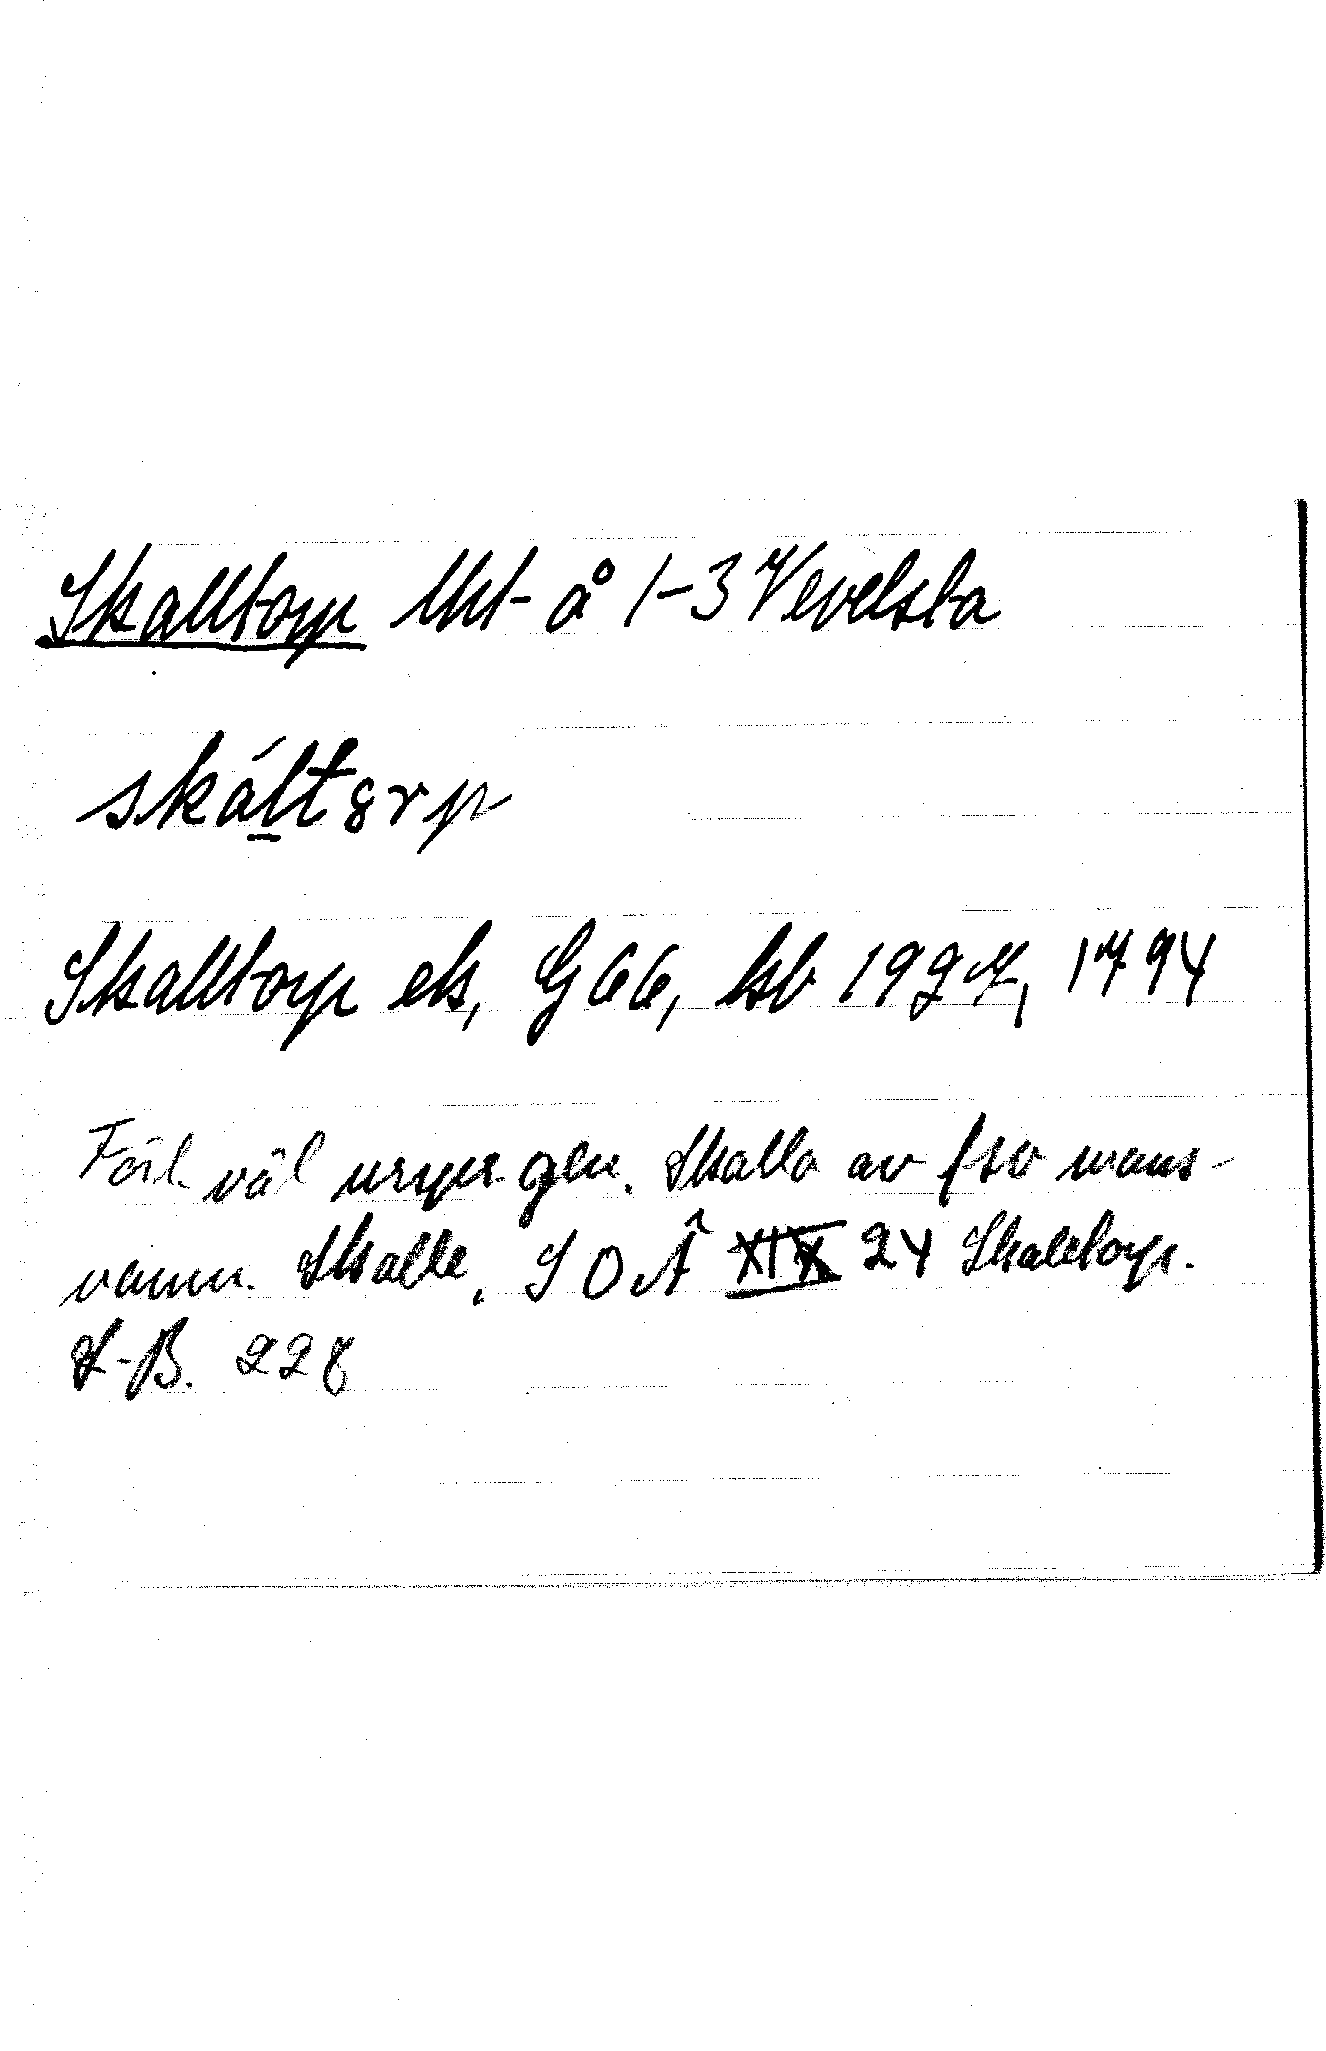 Skalltorp Ukl- å 1-3 Vevelsta
skáltɞrp
Skalltorp ek, G66, hb 1927, 1794
Förl. väl urspr. gen. Skalla av fsv mans-
namn. Skalle. SOÄ XIX 24 Skaletorp.
L-B. 228